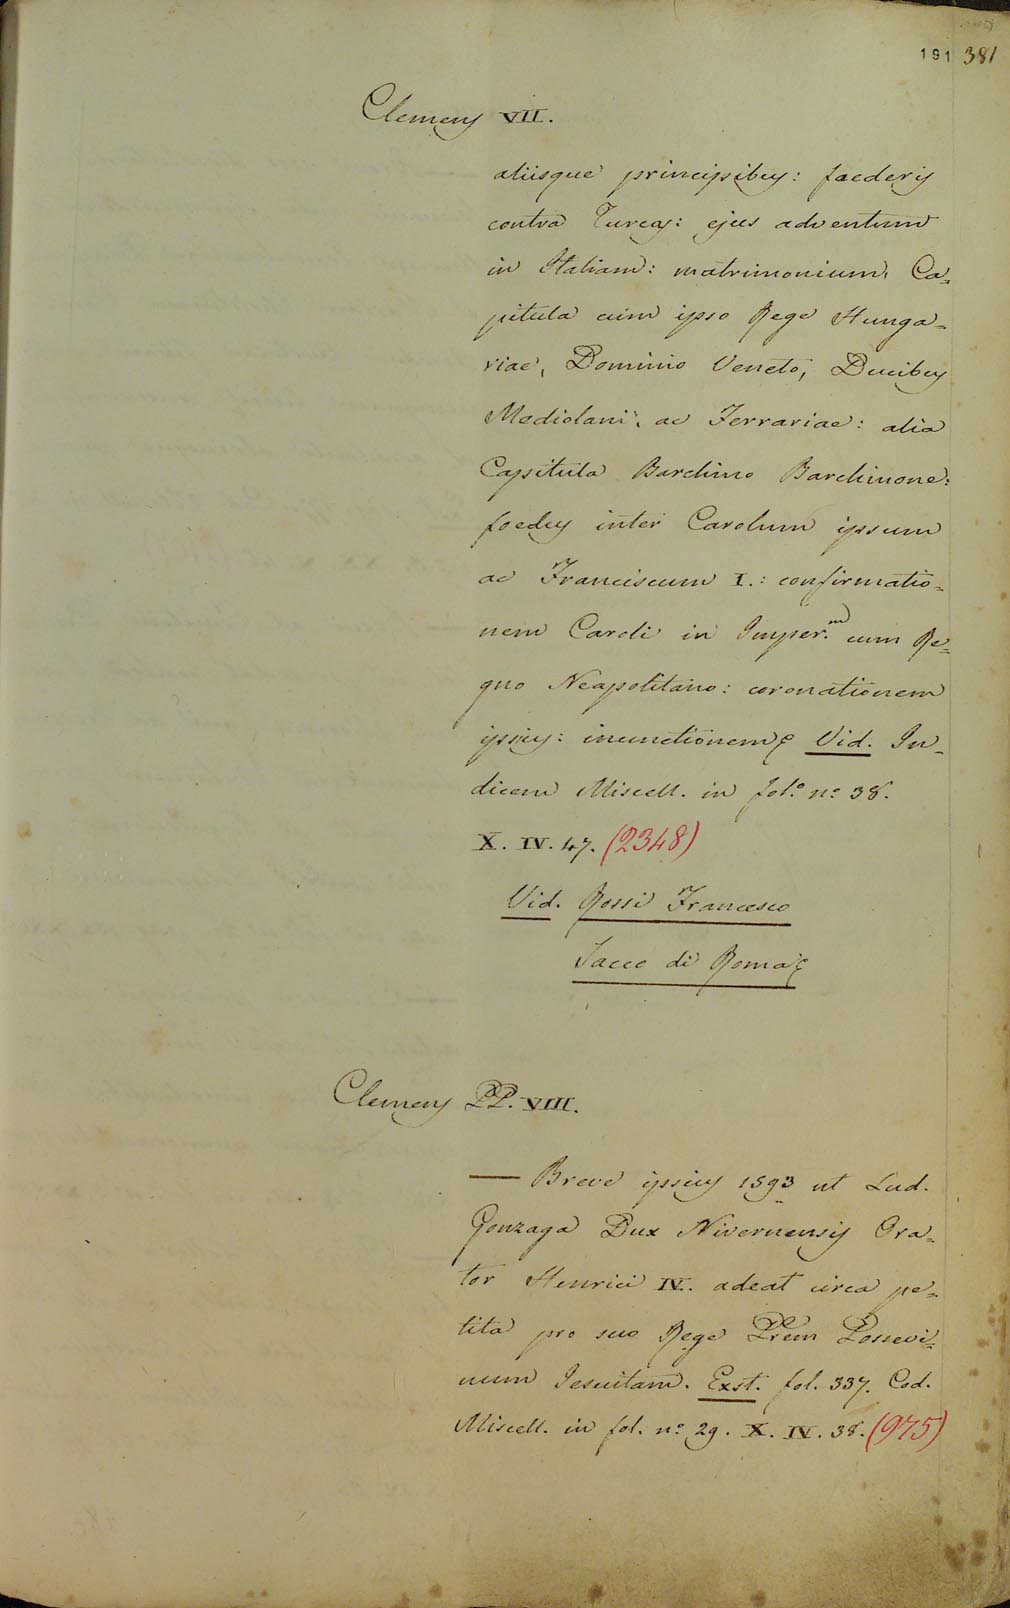 191 381
Clemens VII.
aliisque principibus: foederis
contra Turcas: ejus adventum
in Italiam: matrimonium, Ca=
pitula cum ipso Rege Hunga=
riae, Dominio Veneto, Ducibus
Mediolani, ac Ferrariae: alia
Capitula Barchino Barchinone:
foedus inter Carolum ipsum
ac Franciscum I.: confirmatio=
nem Caroli in Imper.m cum Re=
gno Neapolitano: coronationem
ipsius: inunctionem& Vid. In=
dicem Miscell. in fol.o no. 38.
X. IV. 47. (2348)
Vid. Rossi Francesco
Sacco di Roma&
Clemens PP. VIII.
— Breve ipsius 1593 ut Lud.
Gonzaga Dux Nivernensis Ora=
tor Henrici IV. adeat circa pe=
tita pro suo Rege Prem Possevi=
num Jesuitam. Exst. fol. 337. Cod.
Miscell. in fol. no. 29. X. IV. 38. (975)